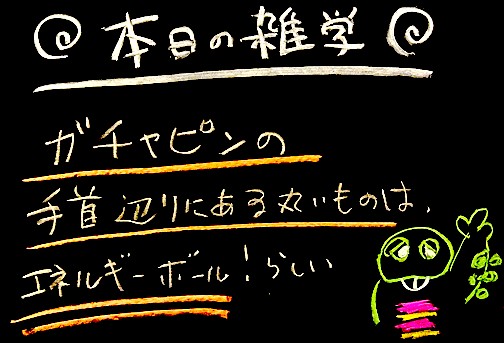 本日の雑学
ガチャピンの
手首辺りにある丸いものは、
エネルギーボール!らしい